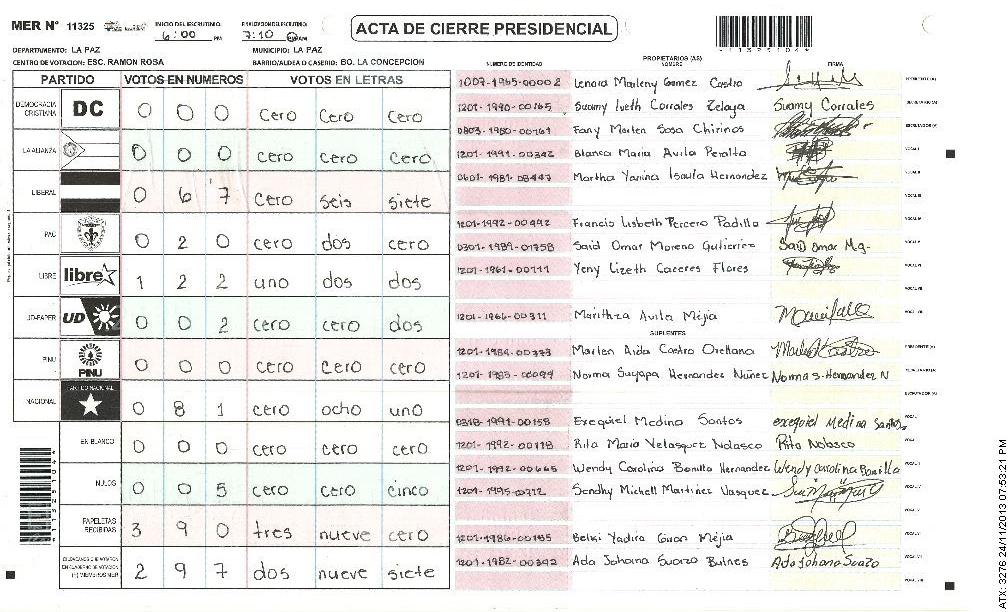 MER Nº 11325
INICIO DEL ESCRUTINIO: 6:00 PM
FINALIZACION DEL ESCRUTINIO: 7:10
ACTA DE CIERRE PRESIDENCIAL
DEPARTAMENTO: LA PAZ MUNICIPIO: LA PAZ
CENTRO DE VOTACION: ESC. RAMON ROSA BARRIO/ALDEA O CASERIO: BO. LA CONCEPCION
PARTIDO VOTOS EN NUMEROS VOTOS EN LETRAS
DEMOCRACIA CRISTIANA DC 0 0 0 cero cero cero
LA ALIANZA 0 0 0 cero cero cero
LIBERAL 0 6 7 cero seis siete
PAC 0 2 0 cero dos cero
LIBRE libre 1 2 2 uno dos dos
UD-FAPER UD 0 0 2 cero cero dos
PINU PINU 0 0 0 cero cero cero
NACIONAL PARTIDO NACIONAL 0 8 1 cero ocho uno
EN BLANCO 0 0 0 cero cero cero
NULOS 0 0 5 cero cero cinco
PAPELETAS RECIBIDAS 3 9 0 tres nueve cero
CIUDADANOS QUE VOTARON EN CUADERNO DE VOTACION (+) MIEMBROS MER 2 9 7 dos nueve siete
PROPIETARIOS (AS)
NUMERO DE IDENTIDAD NOMBRE FIRMA
1007-1965-00002 Lenora Marleny Gomez Castro
1201-1990-00165 Suamy Iveth Corrales Zelaya Suamy Corrales
0803-1980-00161 Fany Marlen Sosa Chirinos
1201-1991-00342 Blanca Maria Avila Peralto
0601-1981-08447 Martha Yanina Isaula Hernandez
1201-1992-00492 Francis Lisbeth Percero Padilla
0301-1989-01758 Said Omar Moreno Gutierrez Said Omar M.g.
1201-1961-00111 Yeny Lizeth Caceres Flores
1201-1966-00311 Marithza Avila Mejia
SUPLENTES
1201-1984-00373 Marlen Aida Castro Orellana
1201-1983-00099 Norma Suyapa Hernandez Nuñez Norma S. Hernandez N
0318-1991-00158 Exequiel Medina Santos exequiel Medina Santos
1201-1992-00118 Rita Maria Velasquez Nolasco Rita Nolasco
1201-1992-00665 Wendy Carolina Bonilla Hernandez Wendy carolina Bonilla
1201-1995-00712 Sendhy Michell Martinez Vasquez
1201-1986-00155 Belki Yadira Giron Mejia
1201-1982-00342 Ada Johana Suazo Bulnes Ada Johana Suazo
ATX: 3276 24/11/2013 07:53:21 PM